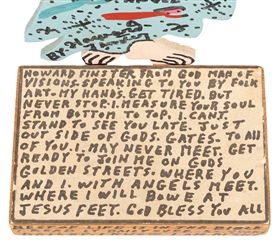 BY Howard
HOWARD FINSTER FROM GOD MAN OF
VISIONS. SPEAKING TO YOU BY FOLK
ART. MY HANDS. GET TIRED. BUT
NEVER STOP. I. MEASURE YOUR SOUL
FROM BOTTOM TO TOP. I. CANT.
STAND TO SEE YOU LATE. JUST
OUT SIDE OF GODS. GATES. TO ALL
OF YOU. I. MAY NEVER MEET. GET
READY TO JOIN ME ON GODS
GOLDEN STREETS. WHERE YOU
AND I. WITH ANGELS MEET.
WHERE I WILL BOWE AT
JESUS FEET. GOD BLESS YOU ALL